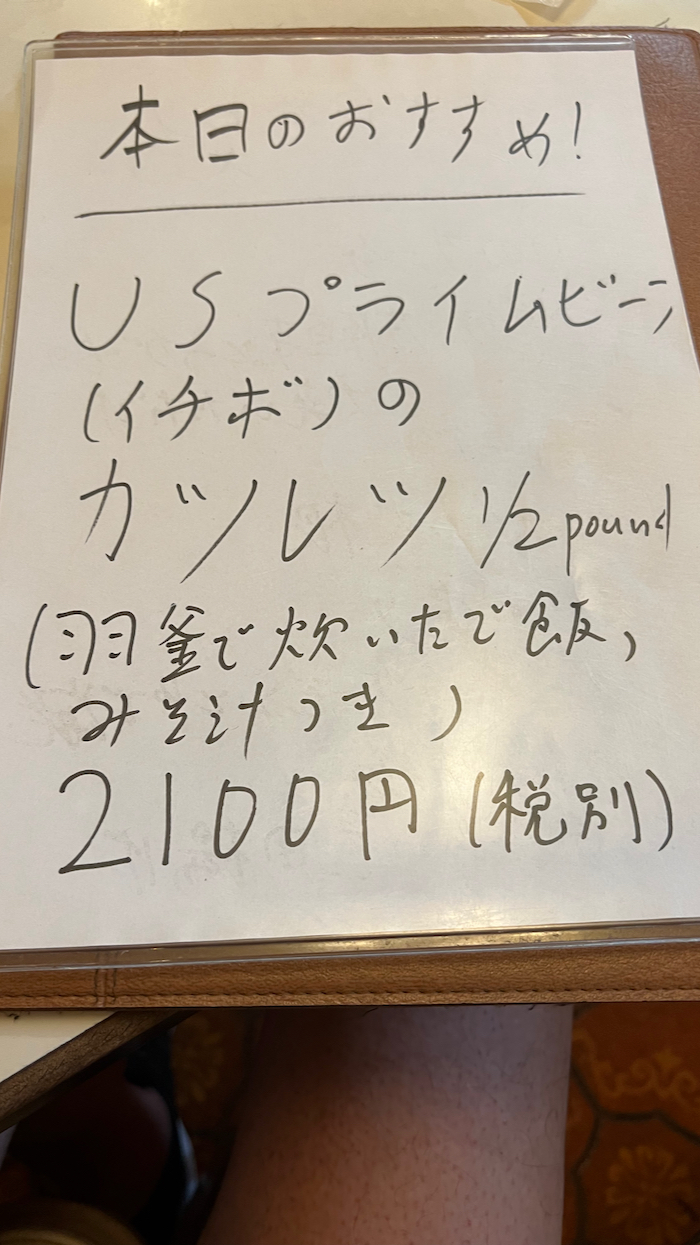 本日のおすすめ!
USプライムビーフ
(イチボ)の
カツレツ 1/2 pound
(羽釜で炊いたご飯,
みそ汁つき)
2100円(税別)